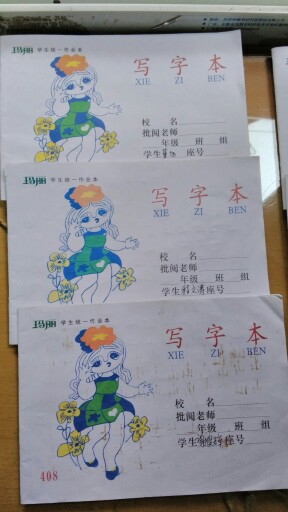 玛丽 学生统一作业本
写字本
XIE ZI BEN
校 名
批阅老师
年级 班 组
学生 座号
玛丽 学生统一作业本
写字本
XIE ZI BEN
校 名
批阅老师
年级 班 组
学生 座号
玛丽 学生统一作业本
写字本
XIE ZI BEN
校 名
批阅老师
年级 班 组
学生 座号
408